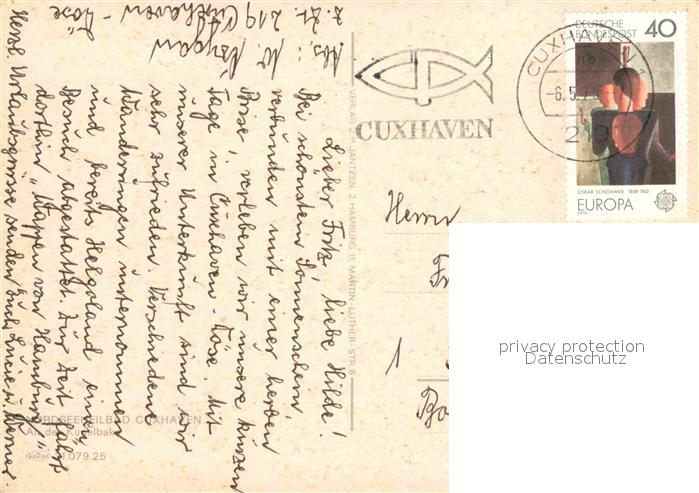 Abs: W. 
z. Zt. 219 Cuxhaven - Döse
Lieber Fritz, liebe Hilde!
Bei schönstem Sonnenschein,
verbunden mit einer herben
Brise, verleben wir unsere kurzen
Tage in Cuxhaven-Döse. Mit
unserer Unterkunft sind wir
sehr zufrieden. Verschiedene
Wanderungen unternommen
und bereits Helgoland einen
Besuch abgestattet. Zur Zeit fährt
dorthin "Wappen von Hamburg"
Herzl. Urlaubsgrüsse senden Euch Lucie u. Werner
NORDSEEHEILBAD CUXHAVEN
An der Kugelbake
1.079.25
VERLAG JANTZEN, 2 HAMBURG 11, MARTIN-LUTHER-STR. 8
CUXHAVEN
CUXHAVEN
-6.5.7
219
DEUTSCHE
BUNDESPOST
40
OSKAR SCHLEMMER 1888-1943
EUROPA
1975
Herrn
1
privacy protection
Datenschutz